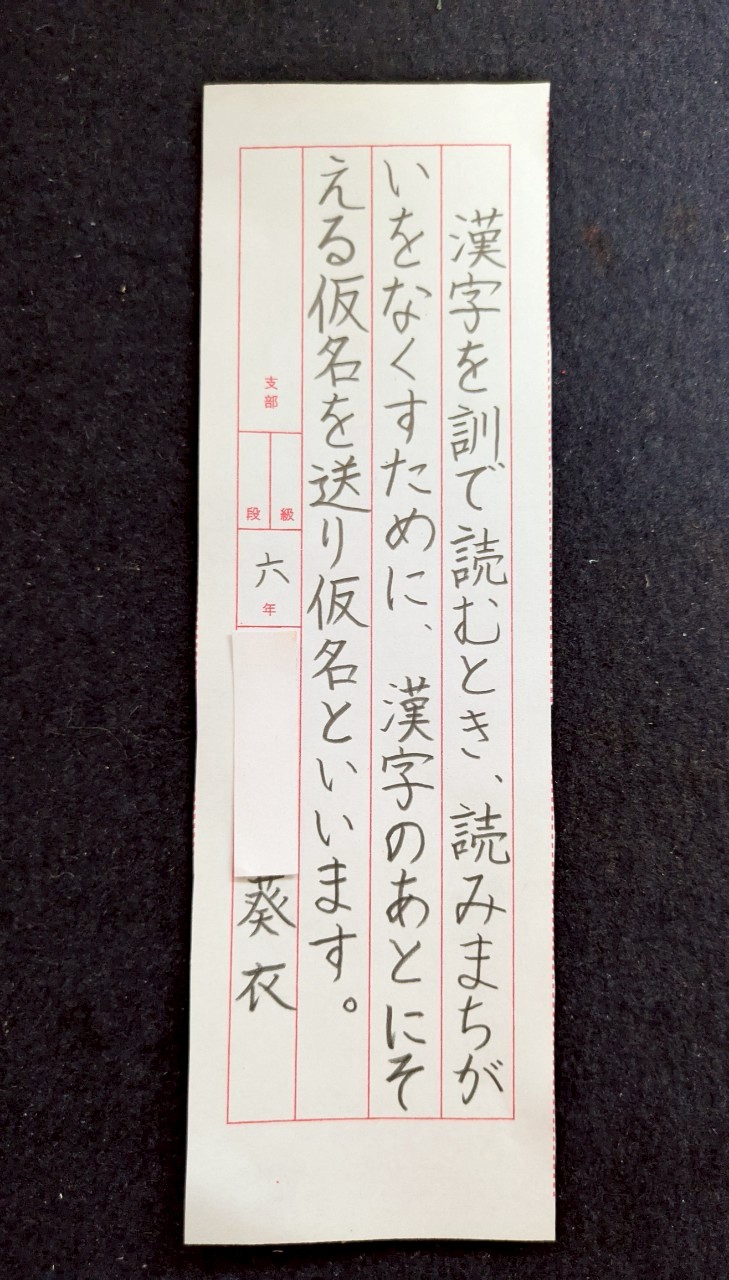 漢字を訓で読むとき、読みまちが
いをなくすために、漢字のあとにそ
える仮名を送り仮名といいます。
支部
級
段
六年
葵衣